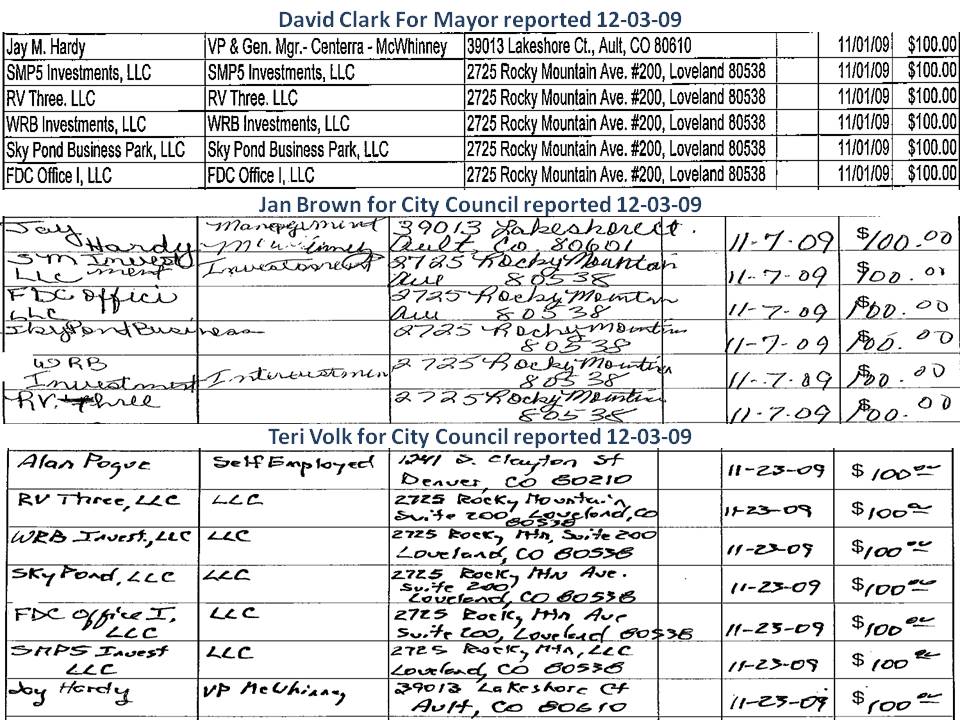 David Clark For Mayor reported 12-03-09
Jay M. Hardy VP & Gen. Mgr.- Centerra - McWhinney 39013 Lakeshore Ct., Ault, CO 80610 11/01/09 $100.00
SMP5 Investments, LLC SMP5 Investments, LLC 2725 Rocky Mountain Ave. #200, Loveland 80538 11/01/09 $100.00
RV Three. LLC RV Three. LLC 2725 Rocky Mountain Ave. #200, Loveland 80538 11/01/09 $100.00
WRB Investments, LLC WRB Investments, LLC 2725 Rocky Mountain Ave. #200, Loveland 80538 11/01/09 $100.00
Sky Pond Business Park, LLC Sky Pond Business Park, LLC 2725 Rocky Mountain Ave. #200, Loveland 80538 11/01/09 $100.00
FDC Office I, LLC FDC Office I, LLC 2725 Rocky Mountain Ave. #200, Loveland 80538 11/01/09 $100.00
Jan Brown for City Council reported 12-03-09
Jay Management 39013 Lakeshore ct.
Hardy Ault, Co. 80601 11-7-09 $100.00
SM Invest 2725 Rocky Mountain
LLC ment Investment Ave 80538 11-7-09 $100.00
FDC Offici 2725 Rocky Mountin
LLC Ave 80538 11-7-09 $100.00
SkyPond Business 2725 Rocky Mountin
80538 11-7-09 $100.00
WRB 2725 Rocky Mountin
Investment 80538 11-7-09 $100.00
RV. Three 2725 Rocky Mountin
80538 11-7-09 $100.00
Teri Volk for City Council reported 12-03-09
Alan Pogue Self Employed 1241 S. Clayton St
Denver, CO 80210 11-23-09 $100
RV Three, LLC LLC 2725 Rocky Mountain
Suite 200, Loveland, CO
80538 11-23-09 $100
WRB Invest., LLC LLC 2725 Rocky Mtn, Suite 200
Loveland, CO 80538 11-23-09 $100
Sky Pond, LLC LLC 2725 Rocky Mtn Ave.
Suite 200,
Loveland, CO 80538 11-23-09 $100
FDC Office I, LLC 2725 Rocky Mtn Ave
LLC Suite 200, Loveland 80538 11-23-09 $100
SMP5 Invest LLC 2725 Rocky Mtn, LLC
LLC Loveland, CO 80538 11-23-09 $100
Jay Hardy VP McWhinney 39013 Lakeshore Ct
Ault, CO 80610 11-23-09 $100